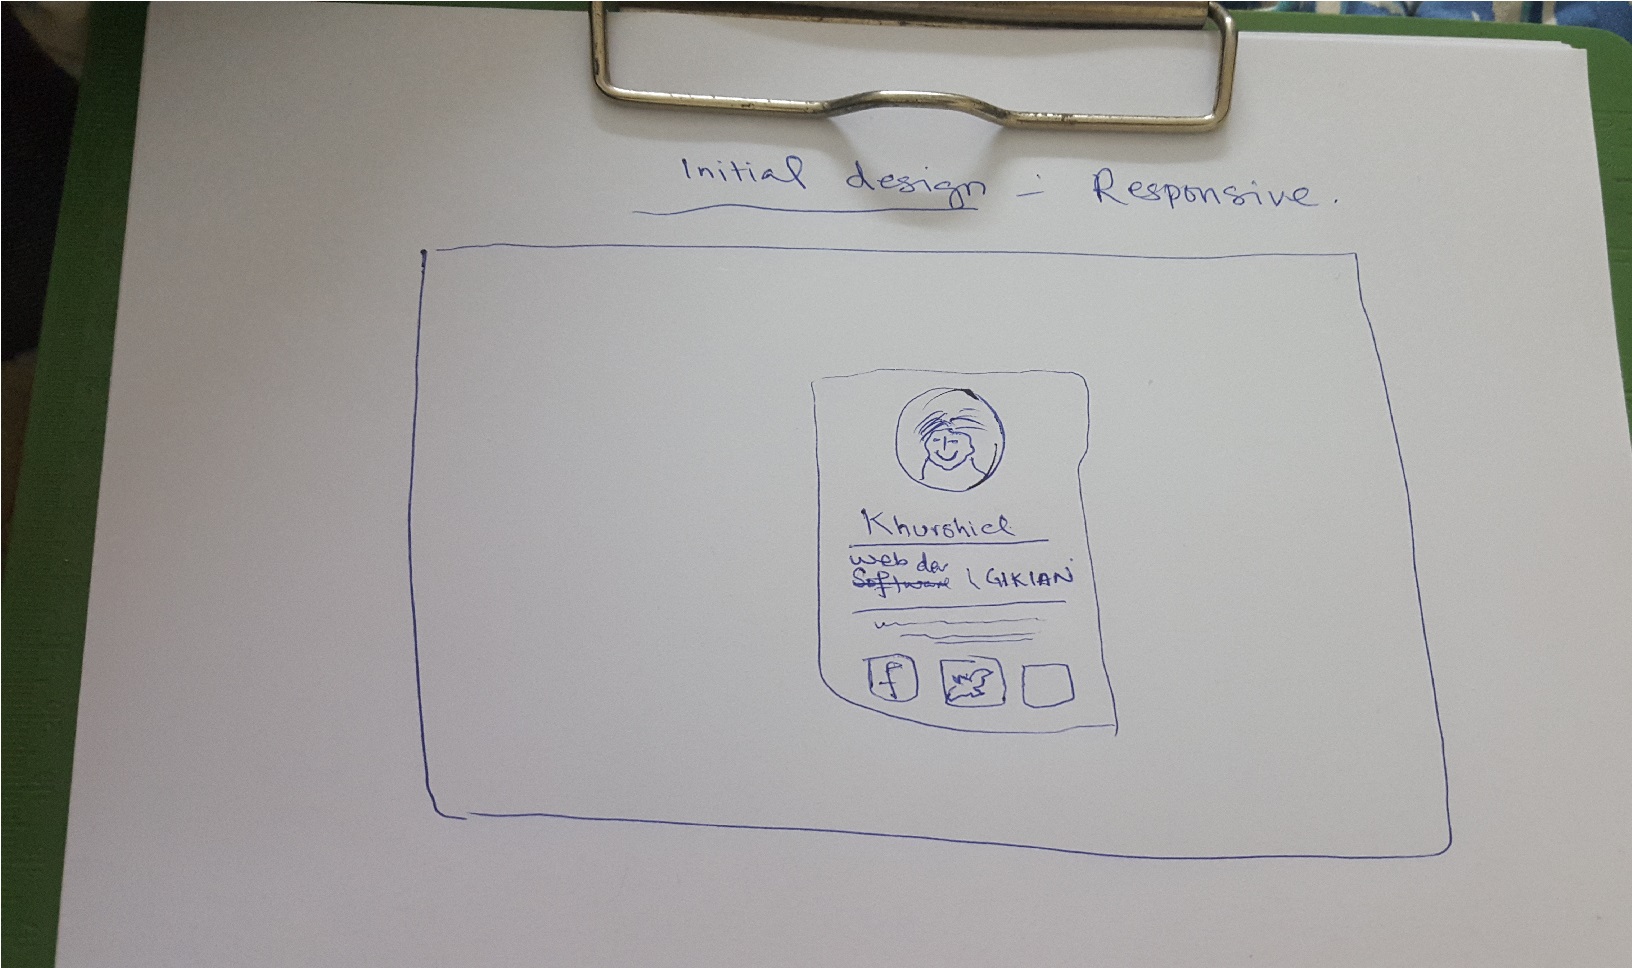 Initial design :- Responsive.
Khurshid
web dev
Software | GIKIAN
f